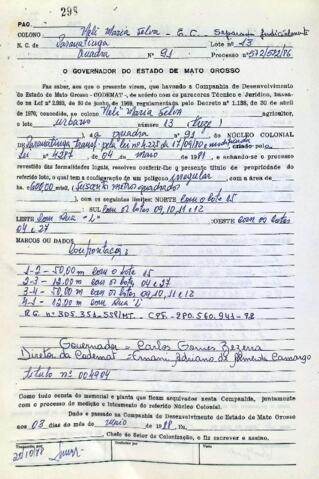 298
PAG.
COLONO Neli Maria Selva E.C. Separada judicialmente
N. C. de Paranatinga LOTE 13
Quadra Nº 91 Processo nº 572/572/86
O GOVERNADOR DO ESTADO DE MATO GROSSO
Faz saber, aos que o presente virem, que havendo a Companhia de Desenvolvimento
do Estado de Mato Grosso - CODEMAT, de acôrdo com os pareceres Técnico e Jurídico, baseados
na Lei nº 2.093, de 30 de junho de 1969, regulamentada pelo Decreto nº 1.138, de 30 de abril
de 1970, concedido, ao colono Neli Maria Selva agricultor,
o lote urbano número 13 (treze)
a quadra nº 91 DO NÚCLEO COLONIAL
de Paranatinga transf. pela lei 4.225 de 17/09/80
lei 4387 de 04 de maio de 1981, e achando-se o processo
revestido das formalidades legais, resolveu conferir-lhe o presente título de propriedade do
referido lote, o qual tem a configuração de um polígono irregular com a área de
ha 600,00 m² (seiscentos metros quadrados)
com os seguintes limites: NORTE com o lote 15
SUL com os lotes 09, 10, 11 e 12
LESTE com Rua "L" OESTE com os lotes
04 e 27
MARCOS OU DADOS
Confrontações
1-2 - 50,00 m com o lote 15
2-3 - 12,00 m com os lotes 04 e 27
3-4 - 50,00 m com os lotes 09, 10, 11 e 12
4-1 - 12,00 m com Rua "L"
R.G. nº 305.351-SSP/MT. - CPF - 290.560.941-78
Governador = Carlos Gomes Bezerra
Diretor da Codemat = Ernani Adriano de Almeida Camargo
título nº 004904
Como tudo consta do memorial e planta que ficam arquivados nesta Companhia, juntamente
com o processo de medição e loteamento do referido Núcleo Colonial.
Dado e passado na Companhia de Desenvolvimento do Estado de Mato Grosso
aos 03 dias do mês de maio de 1988. Eu,
Chefe do Setor de Colonização, o fiz escrever e assino.